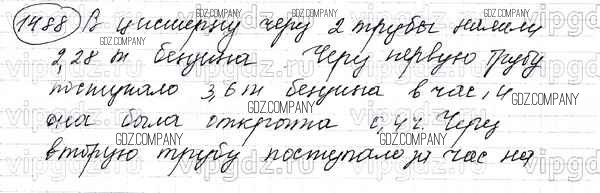 1488) В цистерну через 2 трубы налили
2,28 т бензина. Через первую трубу
поступало 3,6 т бензина в час, и
она была открыта 0,4 ч. Через
вторую трубу поступало за час на